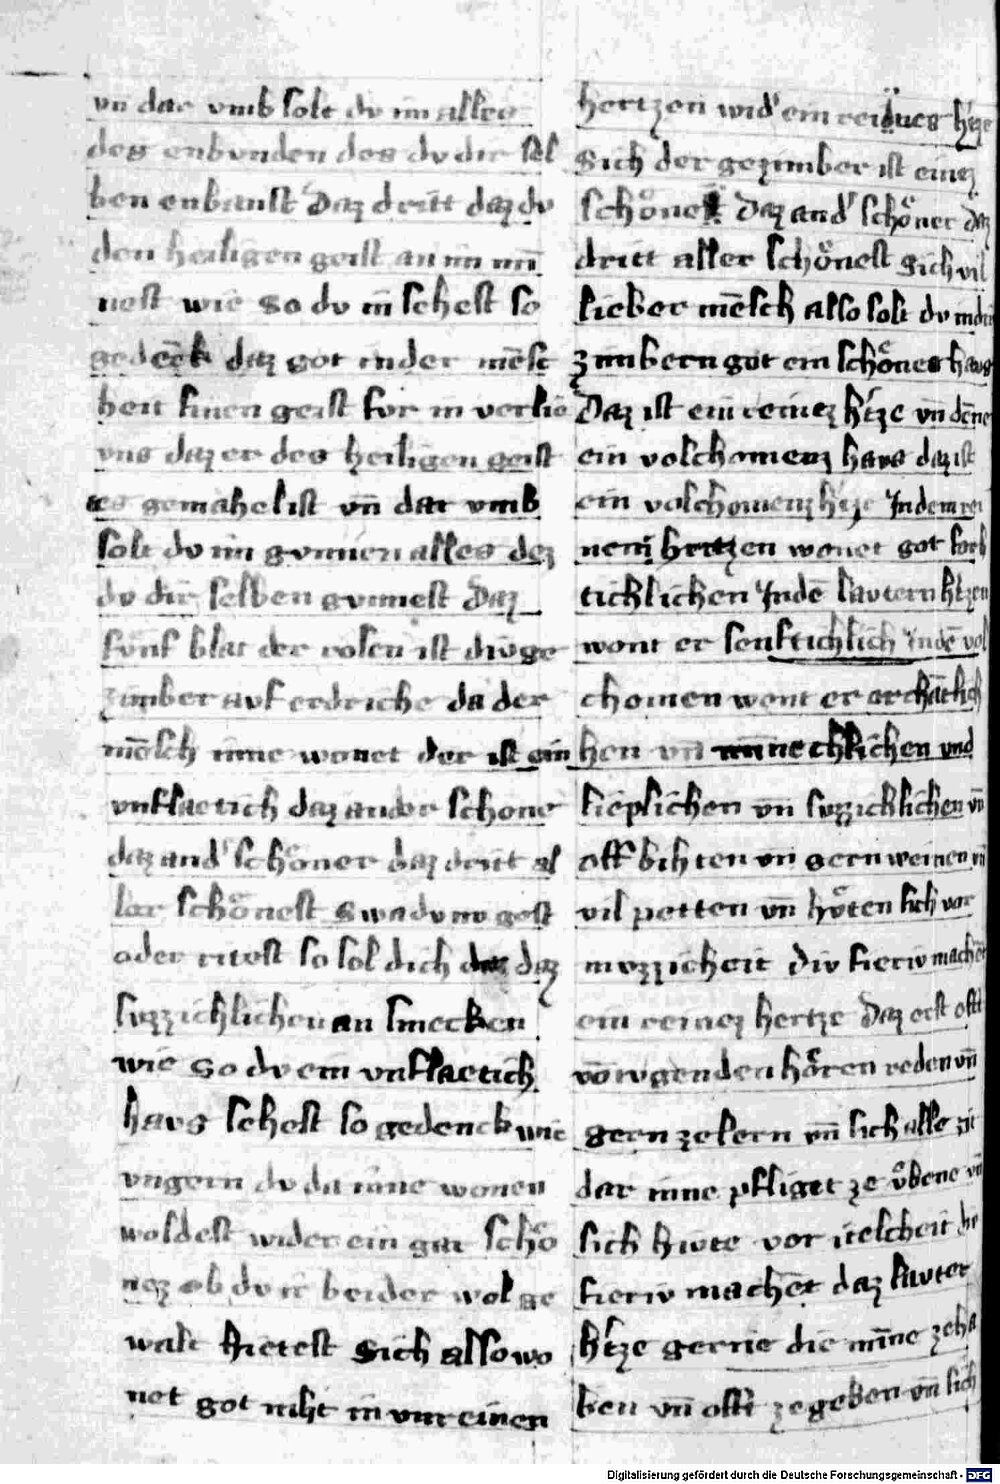 vn dar vmb solt dv im alles
des enbunden des dv dir sel
ben enbanst Daz dritt daz dv
den heiligen geist an im mī
nest wie so dv in sehest so
gedēck daz got in der mēsc
heit sinen geist
vns daz er des heiligen geist
es gemahel ist vn̄ dar vmb
solt dv im gunnen alles dez
dv dir selben gunnest Daz
fünf blat der rosen ist driv ge
zimber auf erdriche da der
mēsch inne wonet der ist ein
vnflaetich daz ander schone
daz and' schoͤner daz dritt al
ler schoͤnest Swa dv nv gest
oder ritest so sol dich daz
suzzichlichen an smecken
wie so dv ein vnflaetich
haus sehest so gedenck wie
vngern dv da inne wonen
woldest wider ein gar schoͤ
nez ob dv ir beider wol ge
walt hietest Sich also wo
net got niht in vnreinen
hertzen wid' ein reines h'tze
Sich der gezimber ist einez
schoͤne Daz and' schoͤner daz
dritt aller schoͤnest Sich vil
lieber mēsch also solt dv in dir
zimbern got ein schoͤnes haus
Daz ist ein reinez h'tze vn̄
ein volchomenz haus daz ist
ein volchomenz h'tze Jn dem rei
nem hertzen wonet got
tichlichen Jn dē lautern h'tzen
wont er senftichlich Jn dē vol
chomen wont er
hen vn̄ minnechlichen vnd
lieplichen vn̄ suzzichlichen vn̄
oft bihten vn̄ gern weinen vn̄
vil petten vn̄ huͤten sich vor
muzzicheit Div sieriv machēt
ein reinez hertze Daz erst oft
vō tugenden hoͤren reden vn̄
gern zelern vn̄ sich alle zit
dar inne pfliget ze uͤbene vn̄
sich hivte vor itelcheit die
sieriv machēt daz lauter
h'tze gerne die mīne ze ha
ben vn̄ oft ze geben vn̄ sich
Digitalisierung gefördert durch die Deutsche Forschungsgemeinschaft - DFG